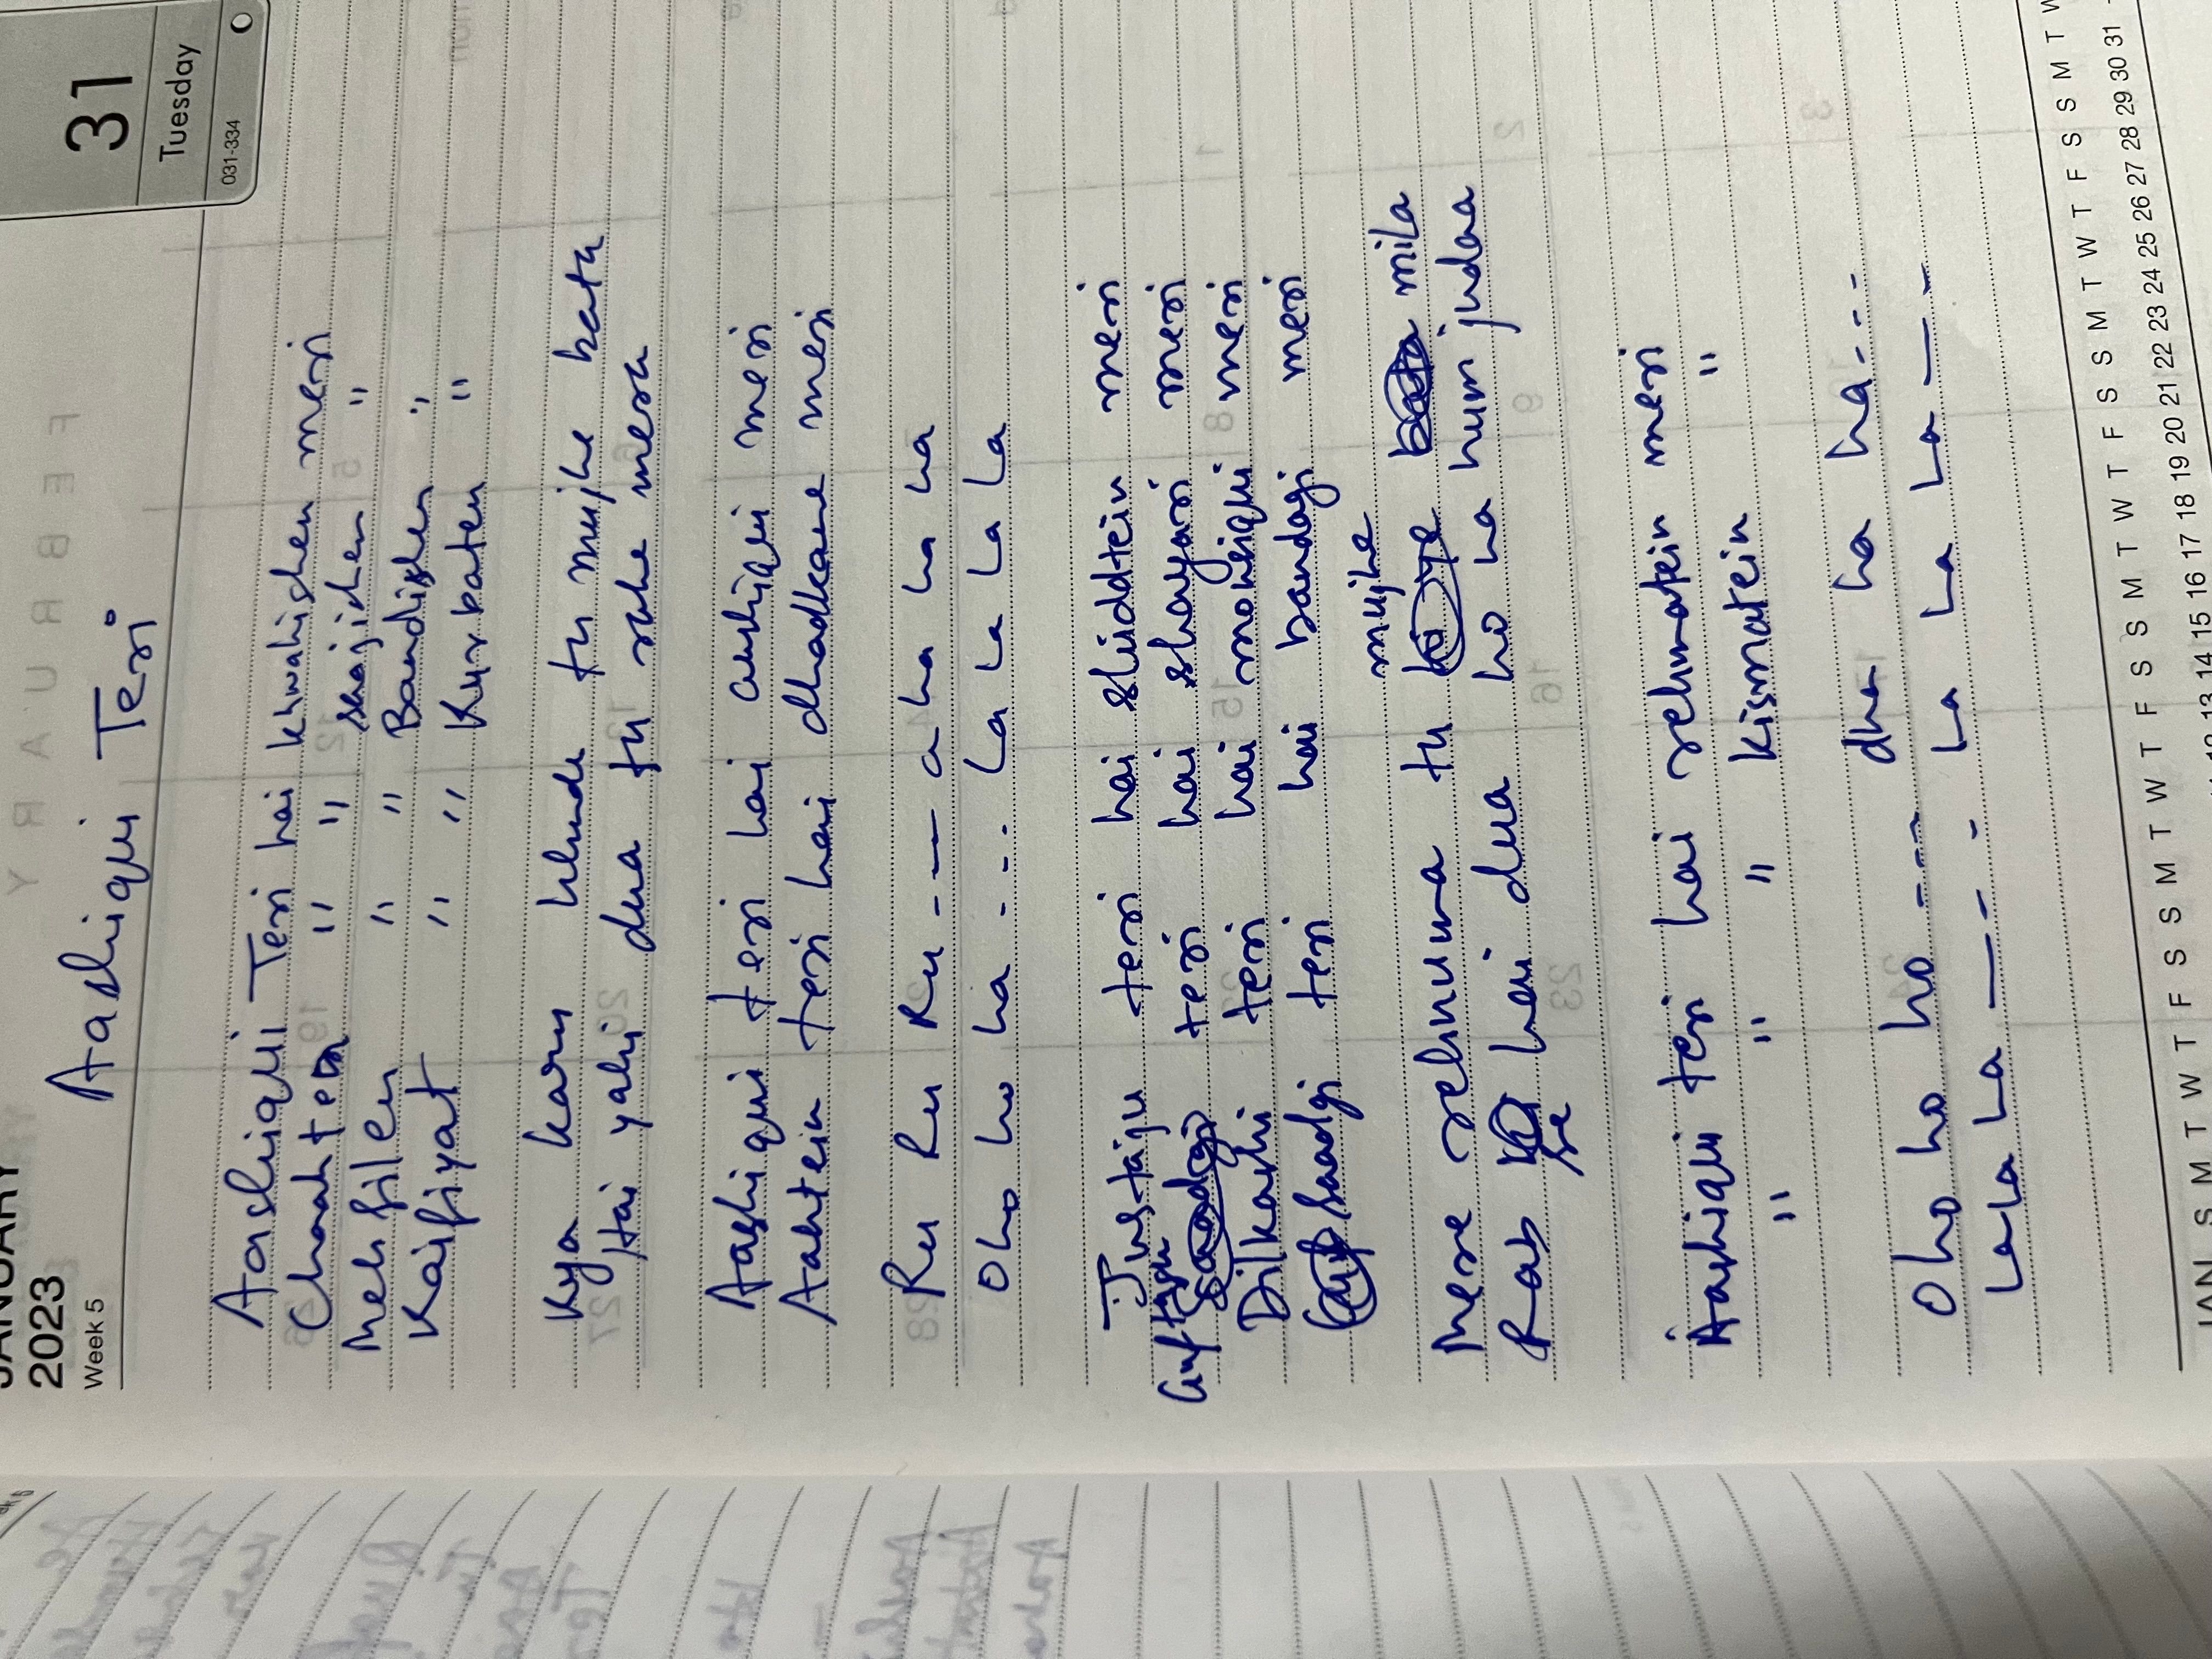 JANUARY
2023
Week 5
31
Tuesday
031-334
Aashiqui Teri
Aashiqui Teri hai khwahishen meri
Chaahten " " sajishen "
Mehfilen " " Bandishen "
Kaifiyat " " Kurbaten "
Kya karu khuda tu mujhe bata
Hai yahi dua tu rahe mera
Aashiqui teri hai aashiqui meri
Aahtein teri hai dhadkane meri
Ru Ru Ru Ru --- a ha ha ha
Oho ho ha ---- La La La La
Justaju teri hai shiddtein meri
Guftagu teri hai shayari meri
Dilkashi teri hai moshiqui meri
Saadgi teri hai bandagi meri
mujhe
Mere rehnuma tu mila
Rab hai dua ho na hum judaa
se
Aashiqui teri hai rehmatein meri
" " " kismatein "
Oho ho ho ---- dha ha ha ---
La La La ---- La La La La ---
JAN S M T W T F S S M T W T F S S M T W T F S S M T W T F S S M T
13 14 15 16 17 18 19 20 21 22 23 24 25 26 27 28 29 30 31
FEBRUARY